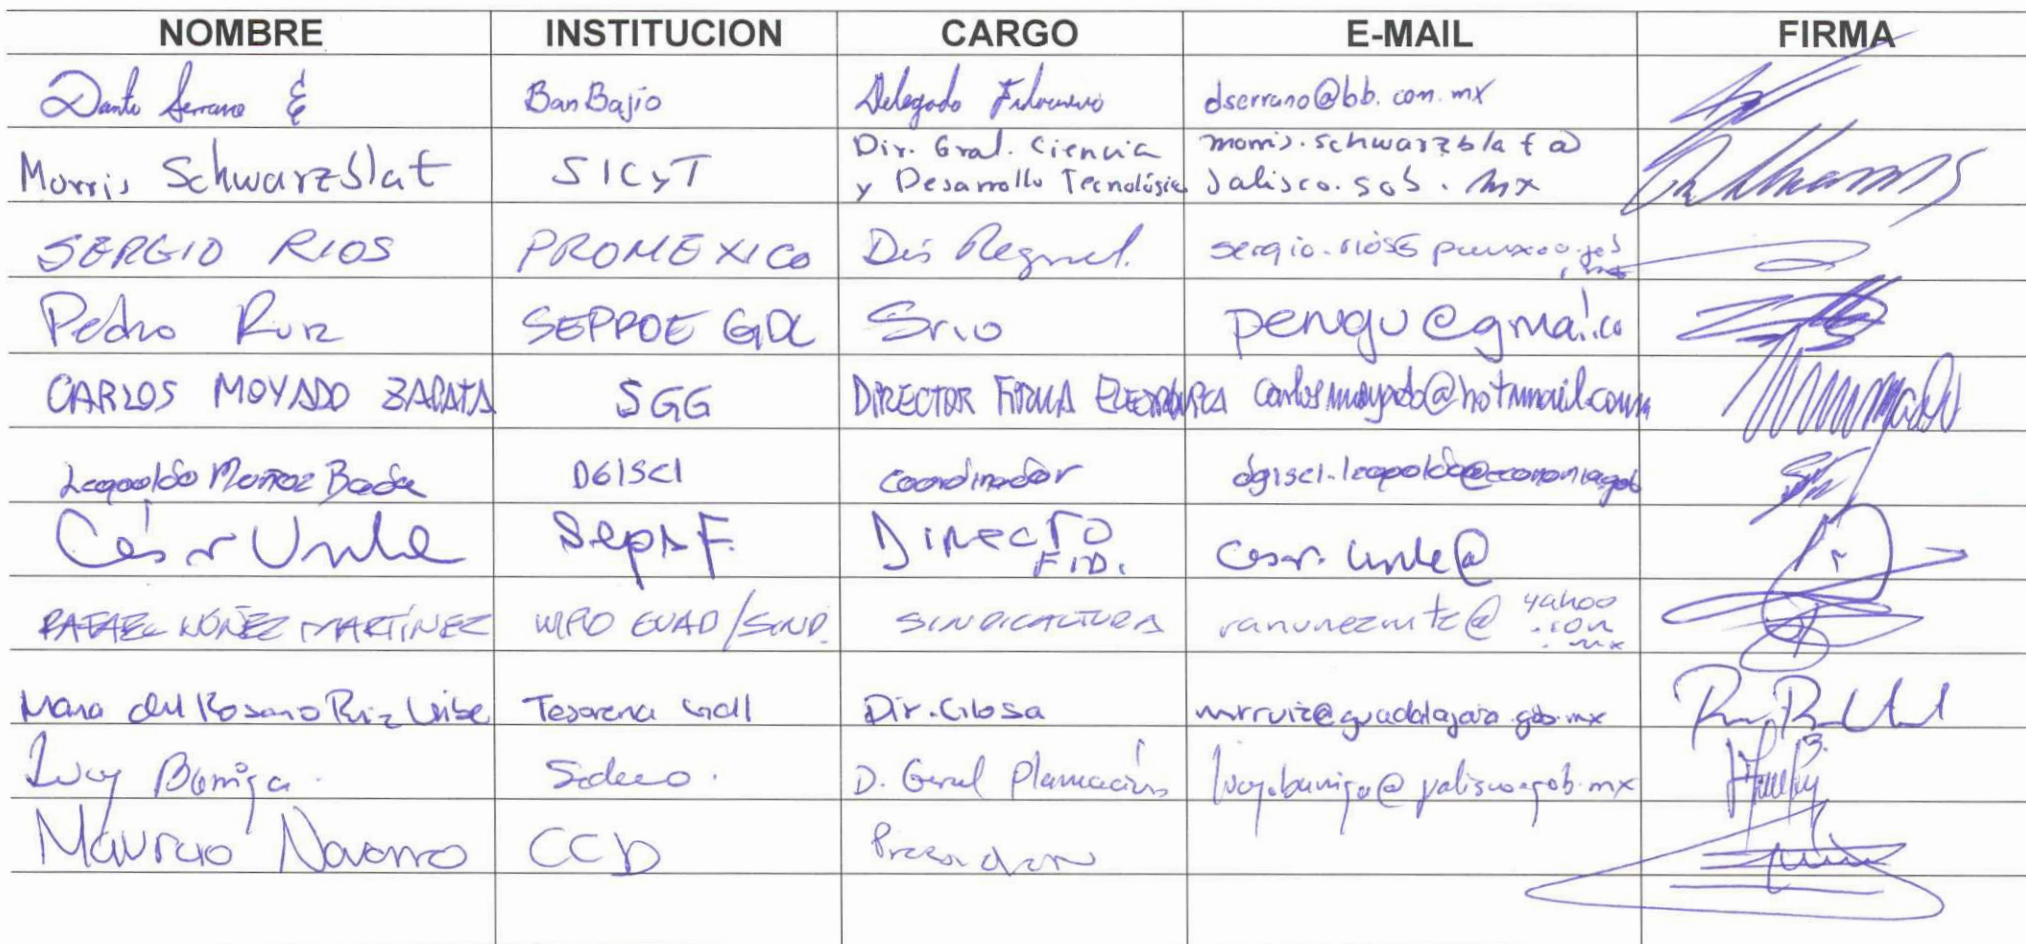 NOMBRE INSTITUCION CARGO E-MAIL FIRMA
Dante Serrano BanBajío Delegado Fiduciario dserrano@bb.com.mx
Morris Schwarzblat SICyT Dir. Gral. Ciencia y Desarrollo Tecnológico morris.schwarzblat@jalisco.gob.mx
SERGIO RIOS PROMEXICO Regional.
Pedro Ruiz SEPROE GDL Srio
CARLOS MOYADO ZAPATA SGG DIRECTOR FIRMA ELECTRONICA carlosmoyado@hotmail.com
Leopoldo Muñoz DGISCI coordinador
César Uribe SepAF. Director FID. cesar.uribe@
RAFAEL NÚÑEZ MARTÍNEZ /SIND. SINDICATURA ranunezmtz@yahoo.com.mx
Maria del Rosario Ruiz Uribe Tesoreria Gdl Dir. Glosa mrruiz@guadalajara.gob.mx
Lucy Barriga. Sedeco. D. Gernl Planeación
Mauricio Navarro CCD